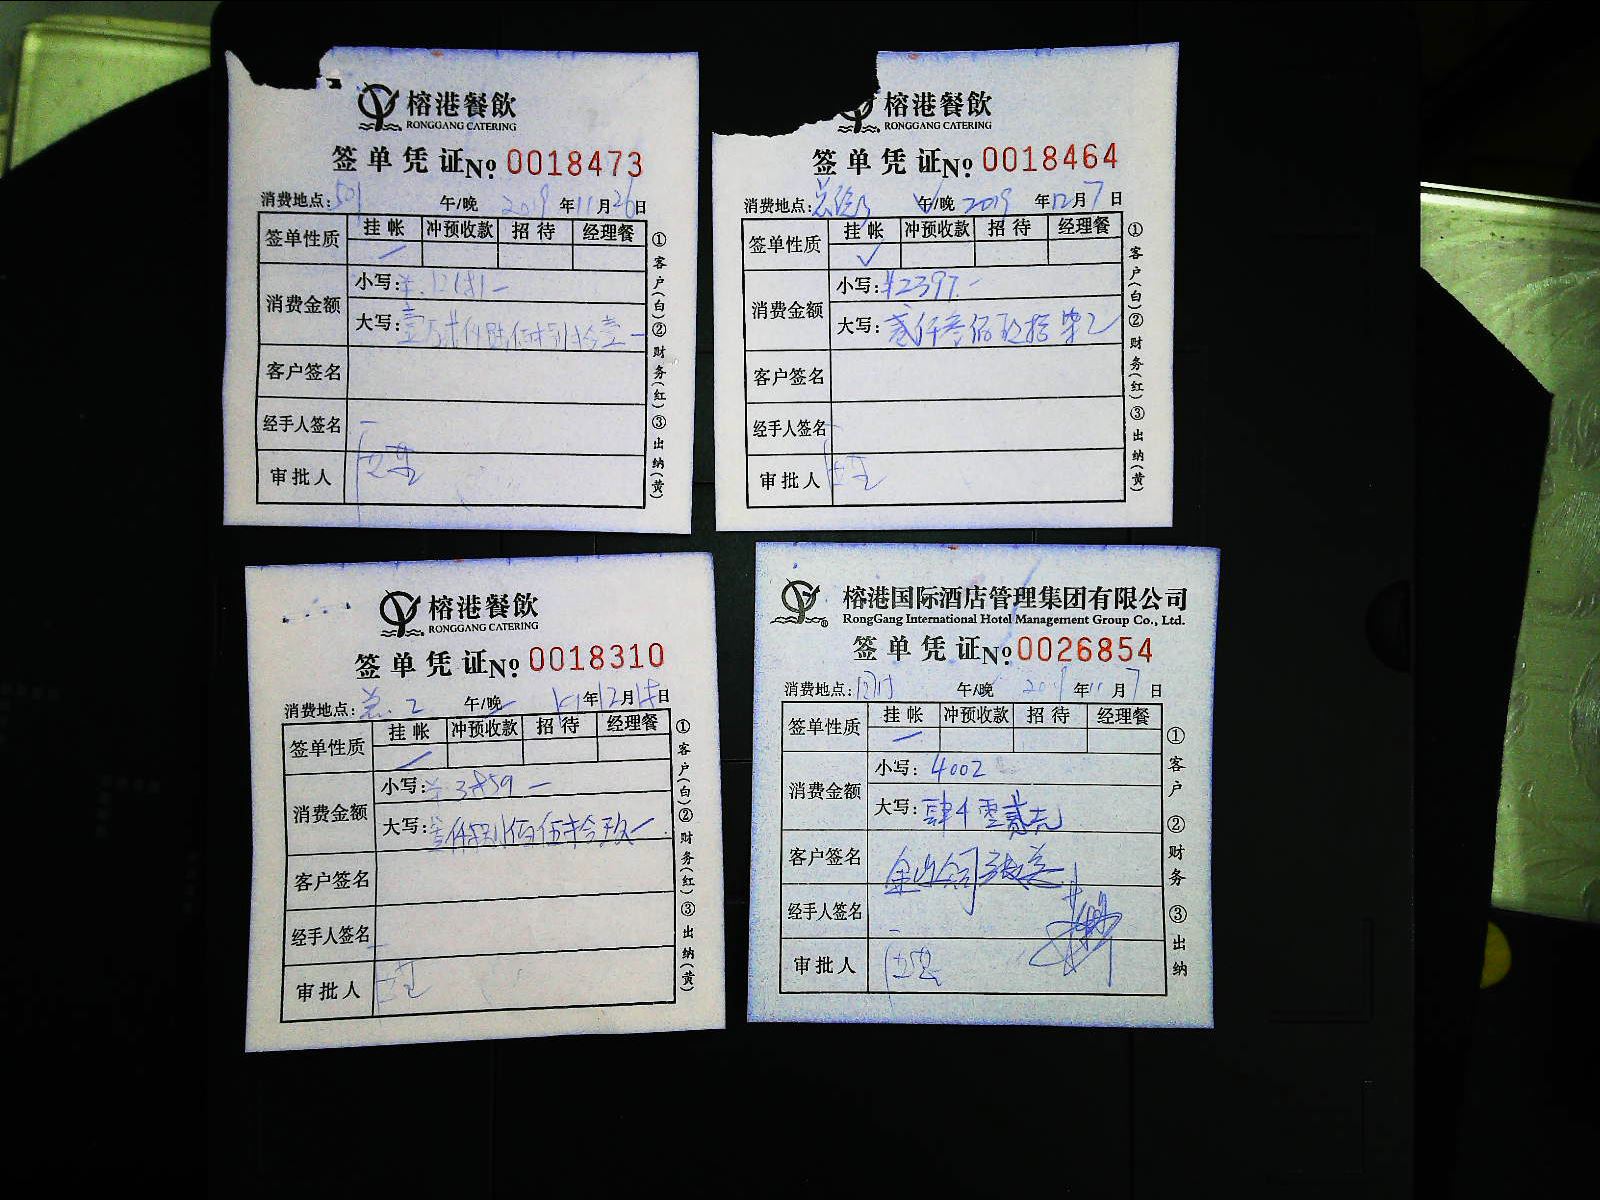 榕港餐飲
RONGGANG CATERING
签单凭证No 0018473
消费地点:501 午/晚 2019年11月26日
签单性质 挂帐 冲预收款 招待 经理餐
消费金额 小写:
大写:
客户签名
经手人签名
审批人
①客户(白)②财务(红)③出纳(黄)
榕港餐飲
RONGGANG CATERING
签单凭证No 0018464
消费地点: 午/晚 2019年12月7日
签单性质 挂帐 冲预收款 招待 经理餐
✓
消费金额 小写:¥2397.-
大写:贰仟叁佰玖拾柒
客户签名
经手人签名
审批人
①客户(白)②财务(红)③出纳(黄)
榕港餐飲
RONGGANG CATERING
签单凭证No 0018310
消费地点: 午/晚 年12月 日
签单性质 挂帐 冲预收款 招待 经理餐
消费金额 小写:¥3859-
大写:
客户签名
经手人签名
审批人
①客户(白)②财务(红)③出纳(黄)
榕港国际酒店管理集团有限公司
RongGang International Hotel Management Group Co., Ltd.
签单凭证No 0026854
消费地点: 午/晚 2019年11月7日
签单性质 挂帐 冲预收款 招待 经理餐
消费金额 小写:4002
大写:肆仟零贰元
客户签名
经手人签名
审批人
①客户 ②财务 ③出纳